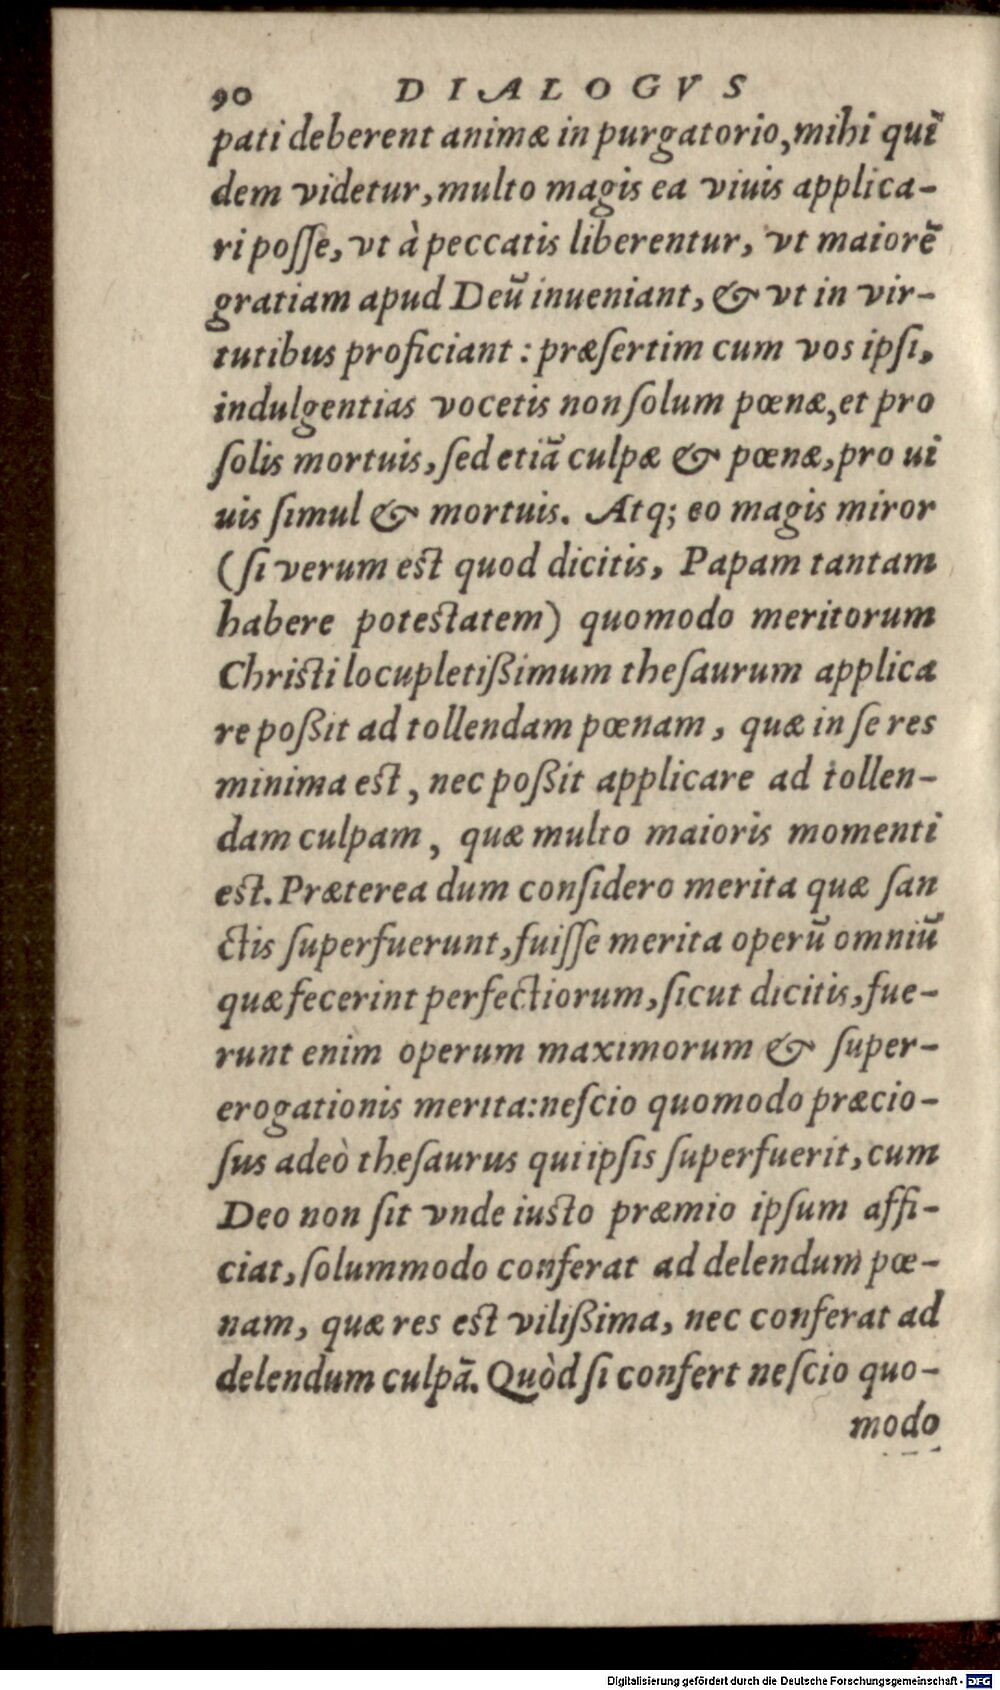 90 DIALOGVS
pati deberent animæ in purgatorio, mihi quĩ
dem videtur, multo magis ea viuis applica-
ri posse, vt à peccatis liberentur, vt maiorẽ
gratiam apud Deũ inueniant, & vt in vir-
tutibus proficiant : præsertim cum vos ipsi,
indulgentias vocetis non solum pœnæ, et pro
solis mortuis, sed etiã culpæ & pœnæ, pro ui
uis simul & mortuis. Atq; eo magis miror
(si verum est quod dicitis, Papam tantam
habere potestatem) quomodo meritorum
Christi locupletißimum thesaurum applica
re poßit ad tollendam pœnam, quæ in se res
minima est, nec poßit applicare ad tollen-
dam culpam, quæ multo maioris momenti
est. Præterea dum considero merita quæ san
ctis superfuerunt, fuisse merita operũ omniũ
quæ fecerint perfectiorum, sicut dicitis, fue-
runt enim operum maximorum & super-
erogationis merita: nescio quomodo præcio-
sus adeò thesaurus qui ipsis superfuerit, cum
Deo non sit vnde iusto præmio ipsum affi-
ciat, solummodo conferat ad delendum pœ-
nam, quæ res est vilißima, nec conferat ad
delendum culpã. Quòd si confert nescio quo-
modo
Digitalisierung gefördert durch die Deutsche Forschungsgemeinschaft - DFG